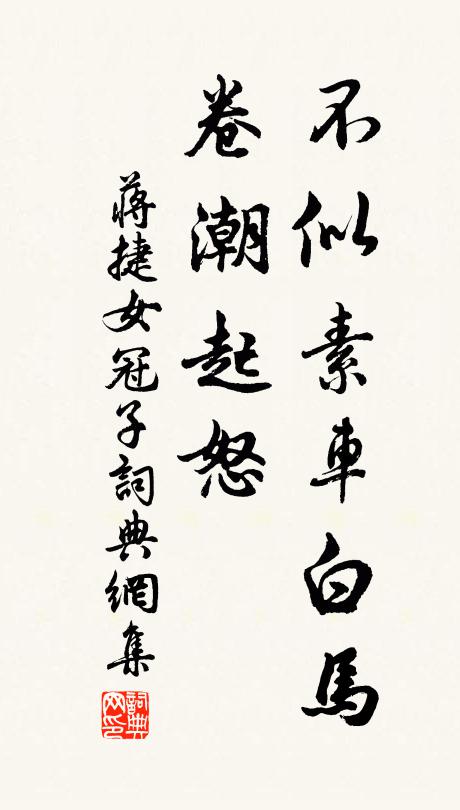 不似素車白馬
卷潮起怒
蔣捷女冠子詞典網集
詞典網印